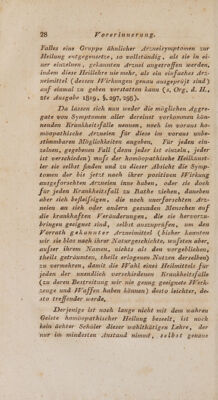 28 Vorerinnerung.
Falles eine Gruppe ähnlicher Arzneisymptomen zur
Heilung entgegensetze, so vollständig, als sie in ei-
ner einzelnen, gekannten Arznei angetroffen werden,
indem diese Heillehre nie mehr, als ein einfaches Arz-
neimittel (dessen Wirkungen genau ausgeprüft sind)
auf einmal zu geben verstatten kann (s. Org. d. H.,
2te Ausgabe 1819, §. 297, 298).
Da lassen sich nun weder die möglichen Aggre-
gate von Symptomen aller dereinst vorkommen kön-
nenden Krankheitsfälle nennen, noch im voraus ho-
möopathische Arzneien für diese im voraus unbe-
stimmbaren Möglichkeiten angeben. Für jeden ein-
zelnen, gegebnen Fall (denn jeder ist einzeln, jeder
ist verschieden) muſs der homöopathische Heilkünst-
ler sie selbst finden und zu dieser Absicht die Symp-
tomen der bis jetzt nach ihrer positiven Wirkung
ausgeforschten Arzneien inne haben, oder sie doch
für jeden Krankheitsfall zu Rathe ziehen, daneben
aber sich befleiſsigen, die noch unerforschten Arz-
neien an sich oder andern gesunden Menschen auf
die krankhaften Veränderungen, die sie hervorzu-
bringen geeignet sind, selbst auszuprüfen, um den
Vorrath gekannter Arzneimittel (bisher kannten
wir sie blos nach ihrer Naturgeschichte, wuſsten aber,
auſser ihrem Namen, nichts als den vorgeblichen,
theils geträumten, theils erlogenen Nutzen derselben)
zu vermehren, damit die Wahl eines Heilmittels für
jeden der unendlich verschiedenen Krankheitsfälle
(zu deren Bestreitung wir nie genug geeignete Werk-
zeuge und Waffen haben können) desto leichter, de-
sto treffender werde.
Derjenige ist noch lange nicht mit dem wahren
Geiste homöopathischer Heilung beseelt, ist noch
kein ächter Schüler dieser wohlthätigen Lehre, der
nur im mindesten Anstand nimmt, selbst genaue